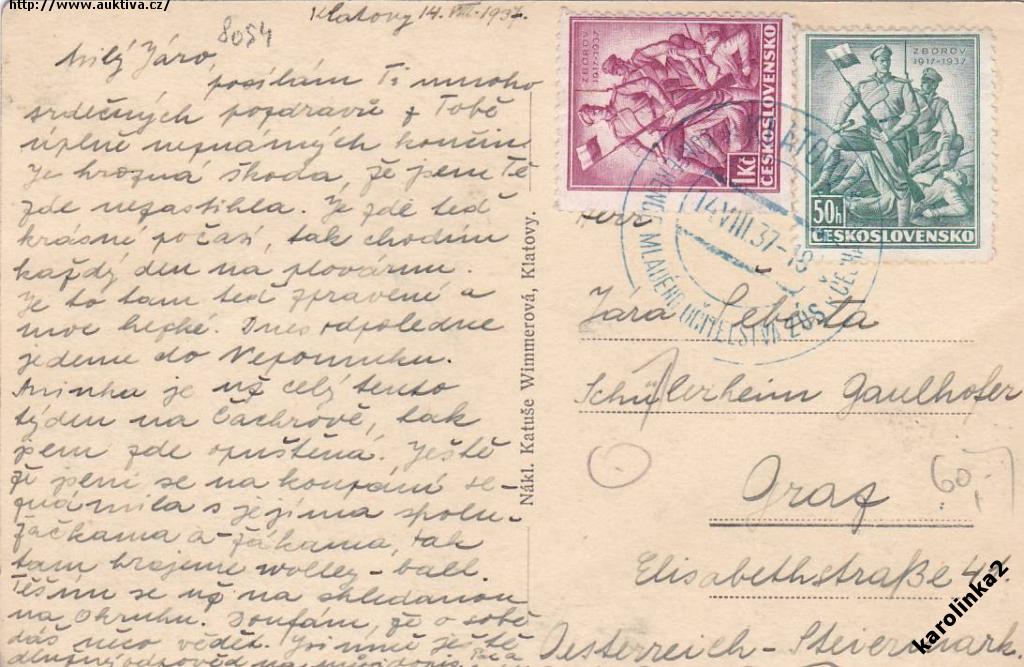 http://www.auktiva.cz/
Klatovy 14. VIII. 1937.
8054
Milý Járo,
posílám Ti mnoho
srdečných pozdravů z Tobě
úplně neznámých končin.
Je hrozná škoda, že jsem Tě
zde nezastihla. Je zde teď
krásné počasí, tak chodím
každý den na plovárnu.
Je to tam teď zpravené a
moc hezké. Dnes odpoledne
jedeme do Nepomuku.
Aninka je už celý tento
týden na Čachrově, tak
jsem zde opuštěná. Ještě
že jsem se na koupání se-
známila s jejíma spolu-
žačkama a žákama, tak
tam hrajeme wolley-ball.
Těším se už na shledanou
na Okruhu. Doufám, že o sobě
dáš něco vědět. ještě
odpověd na
Nákl. Katuše Wimmerová, Klatovy.
ZBOROV
1917-1937
1 Kč
ČESKOSLOVENSKO
ZBOROV
1917-1937
50h
ČESKOSLOVENSKO
KLATOVY
14.VIII.37-18
MLADÉHO UČITELSTVA
Herr
Jára Šebesta
Schülerheim Gaulhofer
60,-
Graz
Elisabethstraße
Oesterreich - Steiermark.
karolinka2